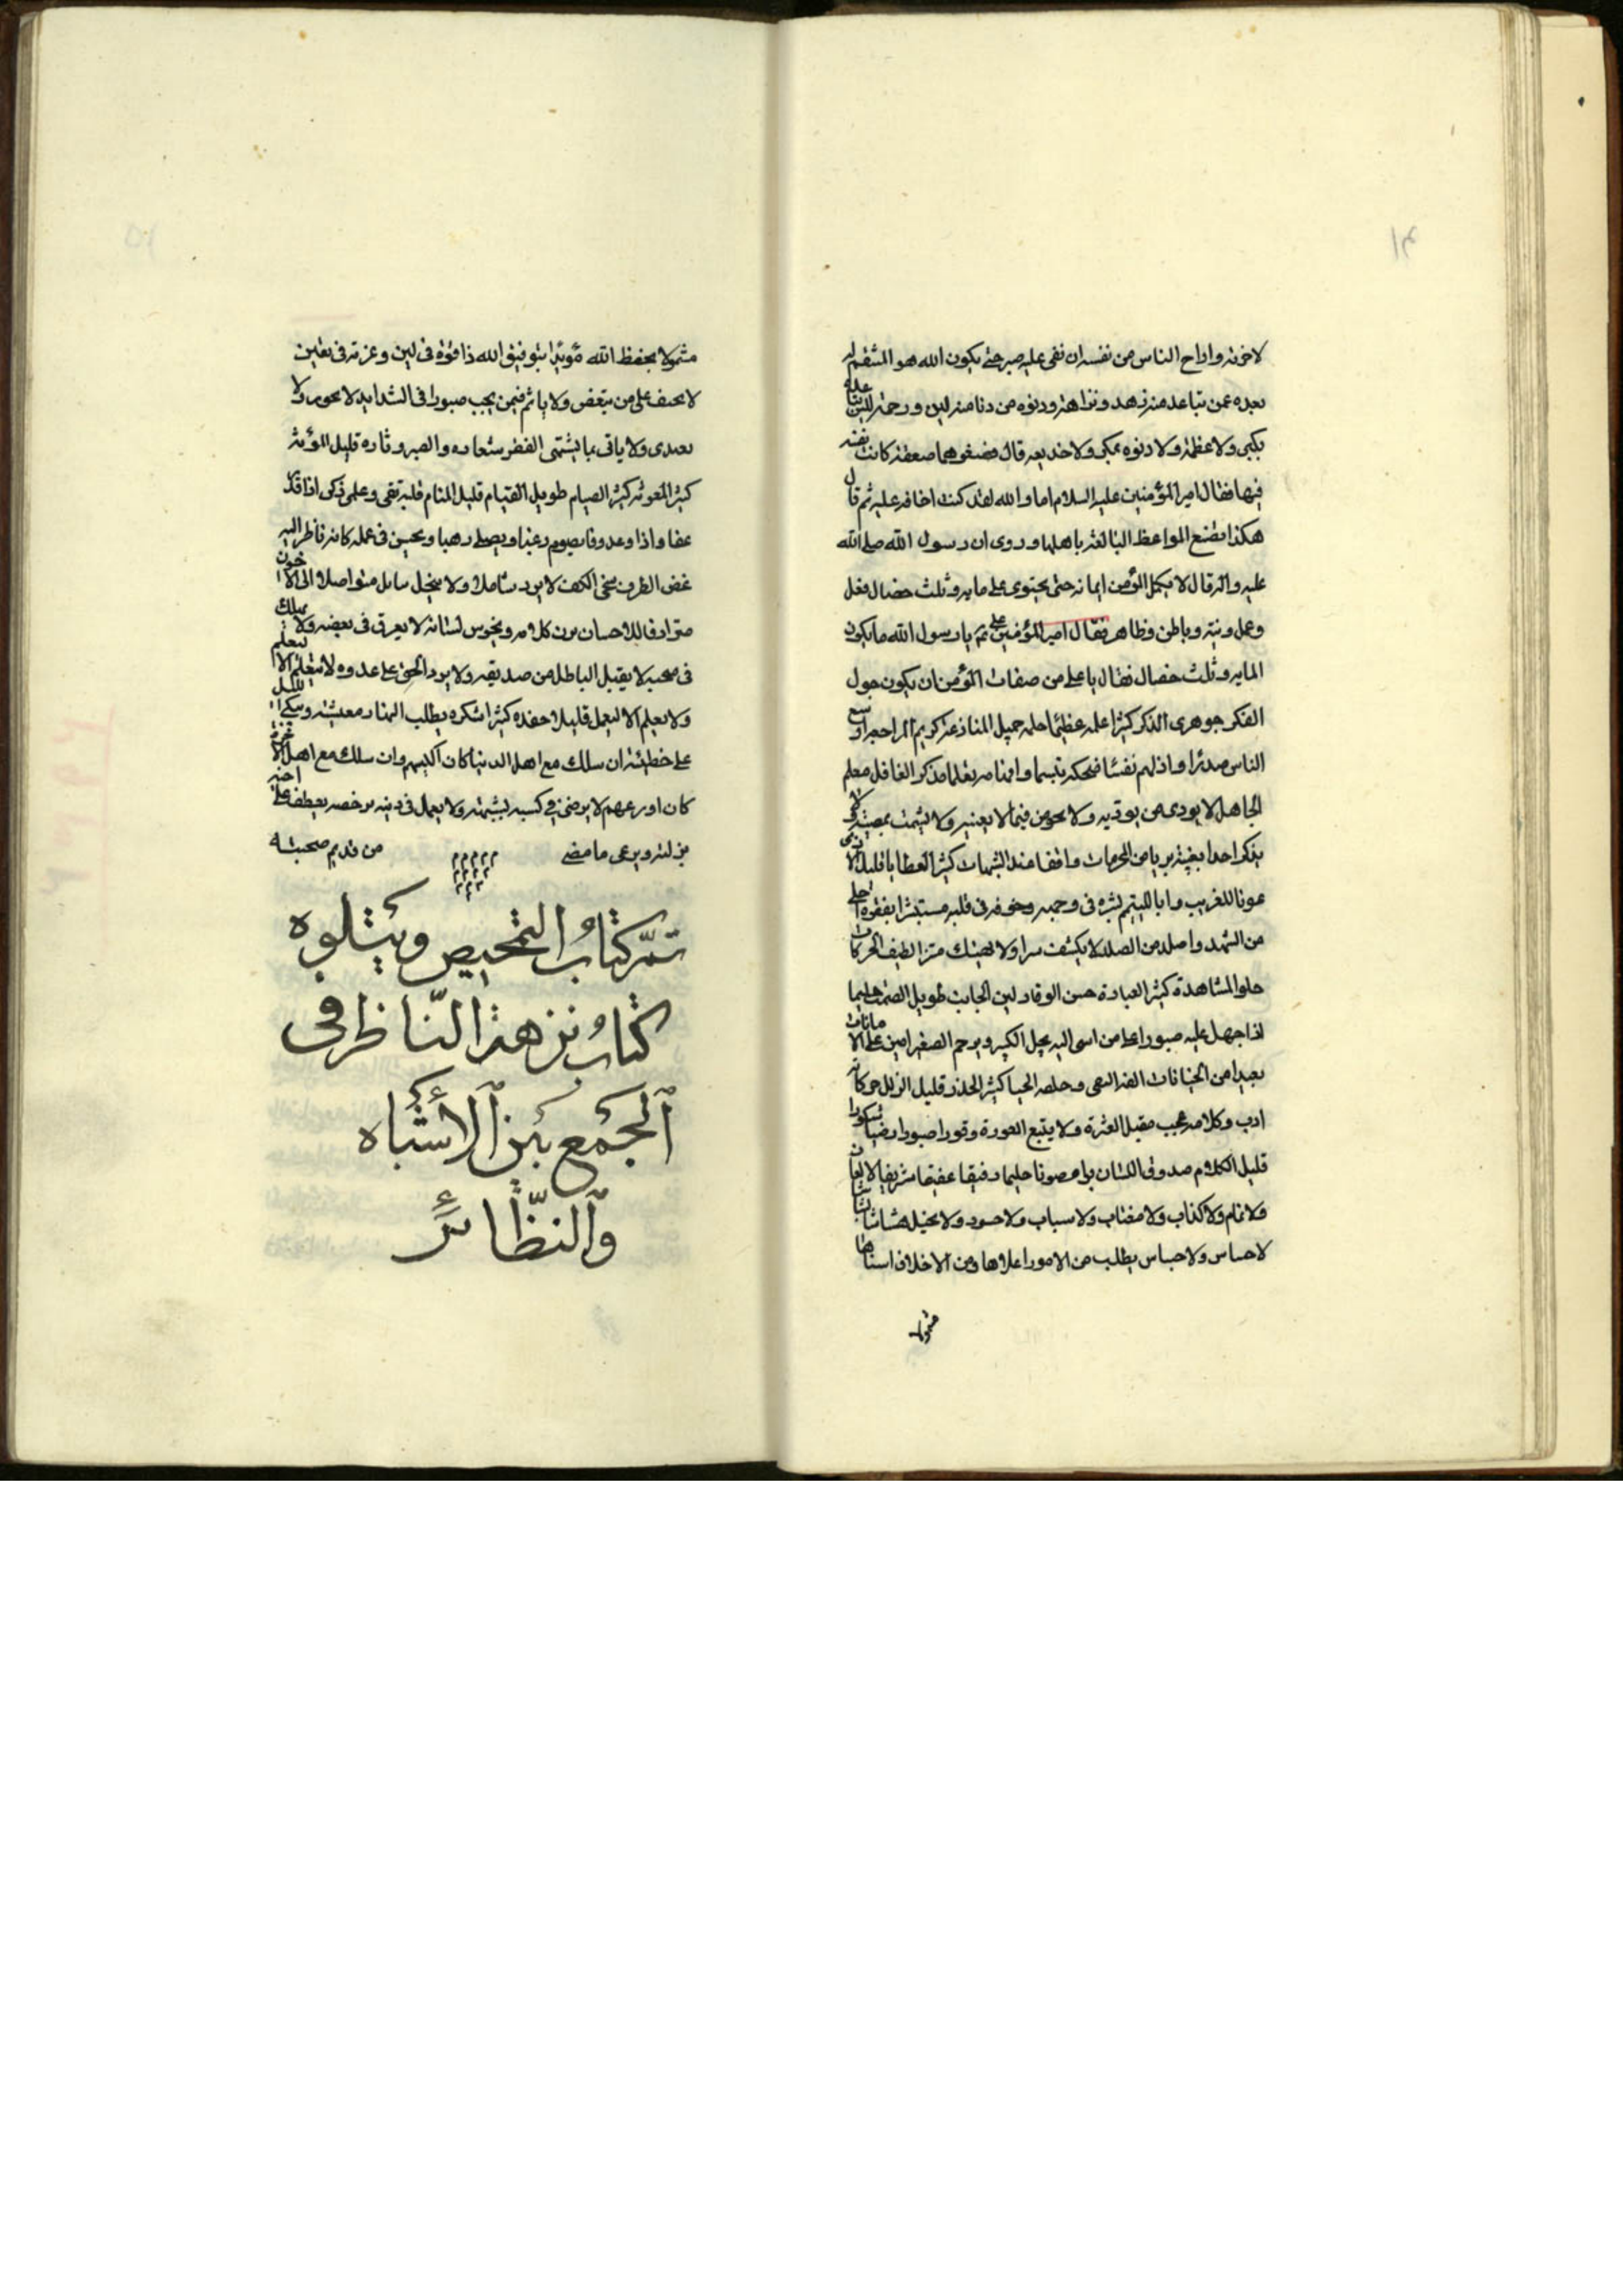 لاخرته واراح الناس من نفسه ان بغى عليه صبر حتى يكون الله هو المنتقم له
بعده عمن تباعد منه زهد ونزاهة ودنوه من دنا منه لين ورحمة ليس تباعده
بكبر ولا عظمة ولا دنوه بمكر ولا خديعه قال فصعق همام صعقة كانت نفسه
فيها فقال امير المؤمنين عليه السلام اما والله لقد كنت اخافه عليه ثم قال
هكذا تصنع المواعظ البالغة باهلها وروى ان رسول الله صلى الله
عليه واله قال لا يكمل المؤمن ايمانه حتى يحتوى على مايه وثلث خصال فعل
وعمل ونية وباطن وظاهر فقال امير المؤمنين على يا رسول الله ما يكون
المايه وثلث خصال فقال يا على من صفات المؤمن ان يكون جول
الفكر جوهرى الذكر كثيرا علمه عظيما حلمه جميل المنازعة كريم المراجعه اوسع
الناس صدرا واذلهم نفسا ضحكه تبسما وافهامه تعلما مذكر الغافل معلم
الجاهل لا يوذى من يوذيه ولا يخوض فيما لا يعنيه ولا يشمت بمصيبة ولا
يذكر احدا بغيبة بريا من المحرمات واقفا عند الشبهات كثير العطا يا قليل الاذى
عونا للغريب وابا لليتيم بشره فى وجهه وخوفه فى قلبه مستبشرا بفقره احلى
من الشهد واصلد من الصلد لا يكشف سرا ولا يهتك سترا لطيف الحركات
حلو المشاهدة كثير العبادة حسن الوقار لين الجانب طويل الصمت حليما
اذا جهل عليه صبورا على من اسى اليه يجل الكبير ويرحم الصغير امين على الامانات
بعيدا من الخيانات الفه التقى وحلمه الحيا كثير الحذر قليل الزلل حركاته
ادب وكلامه عجب مقيل العثرة ولا يتبع العورة وقورا صبورا رضيا شكورا
قليل الكلام صدوق اللسان برا مصونا حليما رفيقا عفيفا شريفا لا لعان
ولا نمام ولا كذاب ولا مغتاب ولا سباب ولا حسود ولا بخيل هشاشا بشاشا
لا حساس ولا جساس يطلب من الامور اعلاها ومن الاخلاق اسناها
مشمولا
مشمولا بحفظ الله مؤيدا بتوفيق الله ذا قوة فى لين وعزمة فى يقين
لا يحيف على من يبغض ولا ياثم فيمن يحب صبورا فى الشدايد لا يجور ولا
يعتدى ولا ياتى بما يشتهى الفقر شعاره والصبر دثاره قليل المؤنة
كثير المعونة كثير الصيام طويل القيام قليل المنام قلبه تقى وعلمه زكى اذا قدر
عفا واذا وعد وفا يصوم رغبا ويصلى رهبا ويحسن فى عمله كانه ناظر اليه
غض الطرف سخى الكف لا يرد سائلا ولا يبخل بنايل متواصلا الى الاخوان
مترادفا للاحسان يزن كلامه ويخرس لسانه لا يغرق فى بغضه ولا يهلك
فى حبه لا يقبل الباطل من صديقه ولا يرد الحق على عدوه لا يتعلم الا ليعلم
ولا يعلم الا ليعمل قليلا حقده كثيرا شكره يطلب النهار معيشته ويبكى الليل
على خطيئته ان سلك مع اهل الدنيا كان اكيسهم وان سلك مع اهل الاخرة
كان اورعهم لا يرضى فى كسبه بشبهة ولا يعمل فى دينه برخصه يعطف على اخيه
بزلته ويرعى ما مضى من قديم صحبته
تمّ كتابُ التمحيص ويتلوه
كتابُ نزهة النّاظر فى
الجمع بين الأشباه
والنظّائر